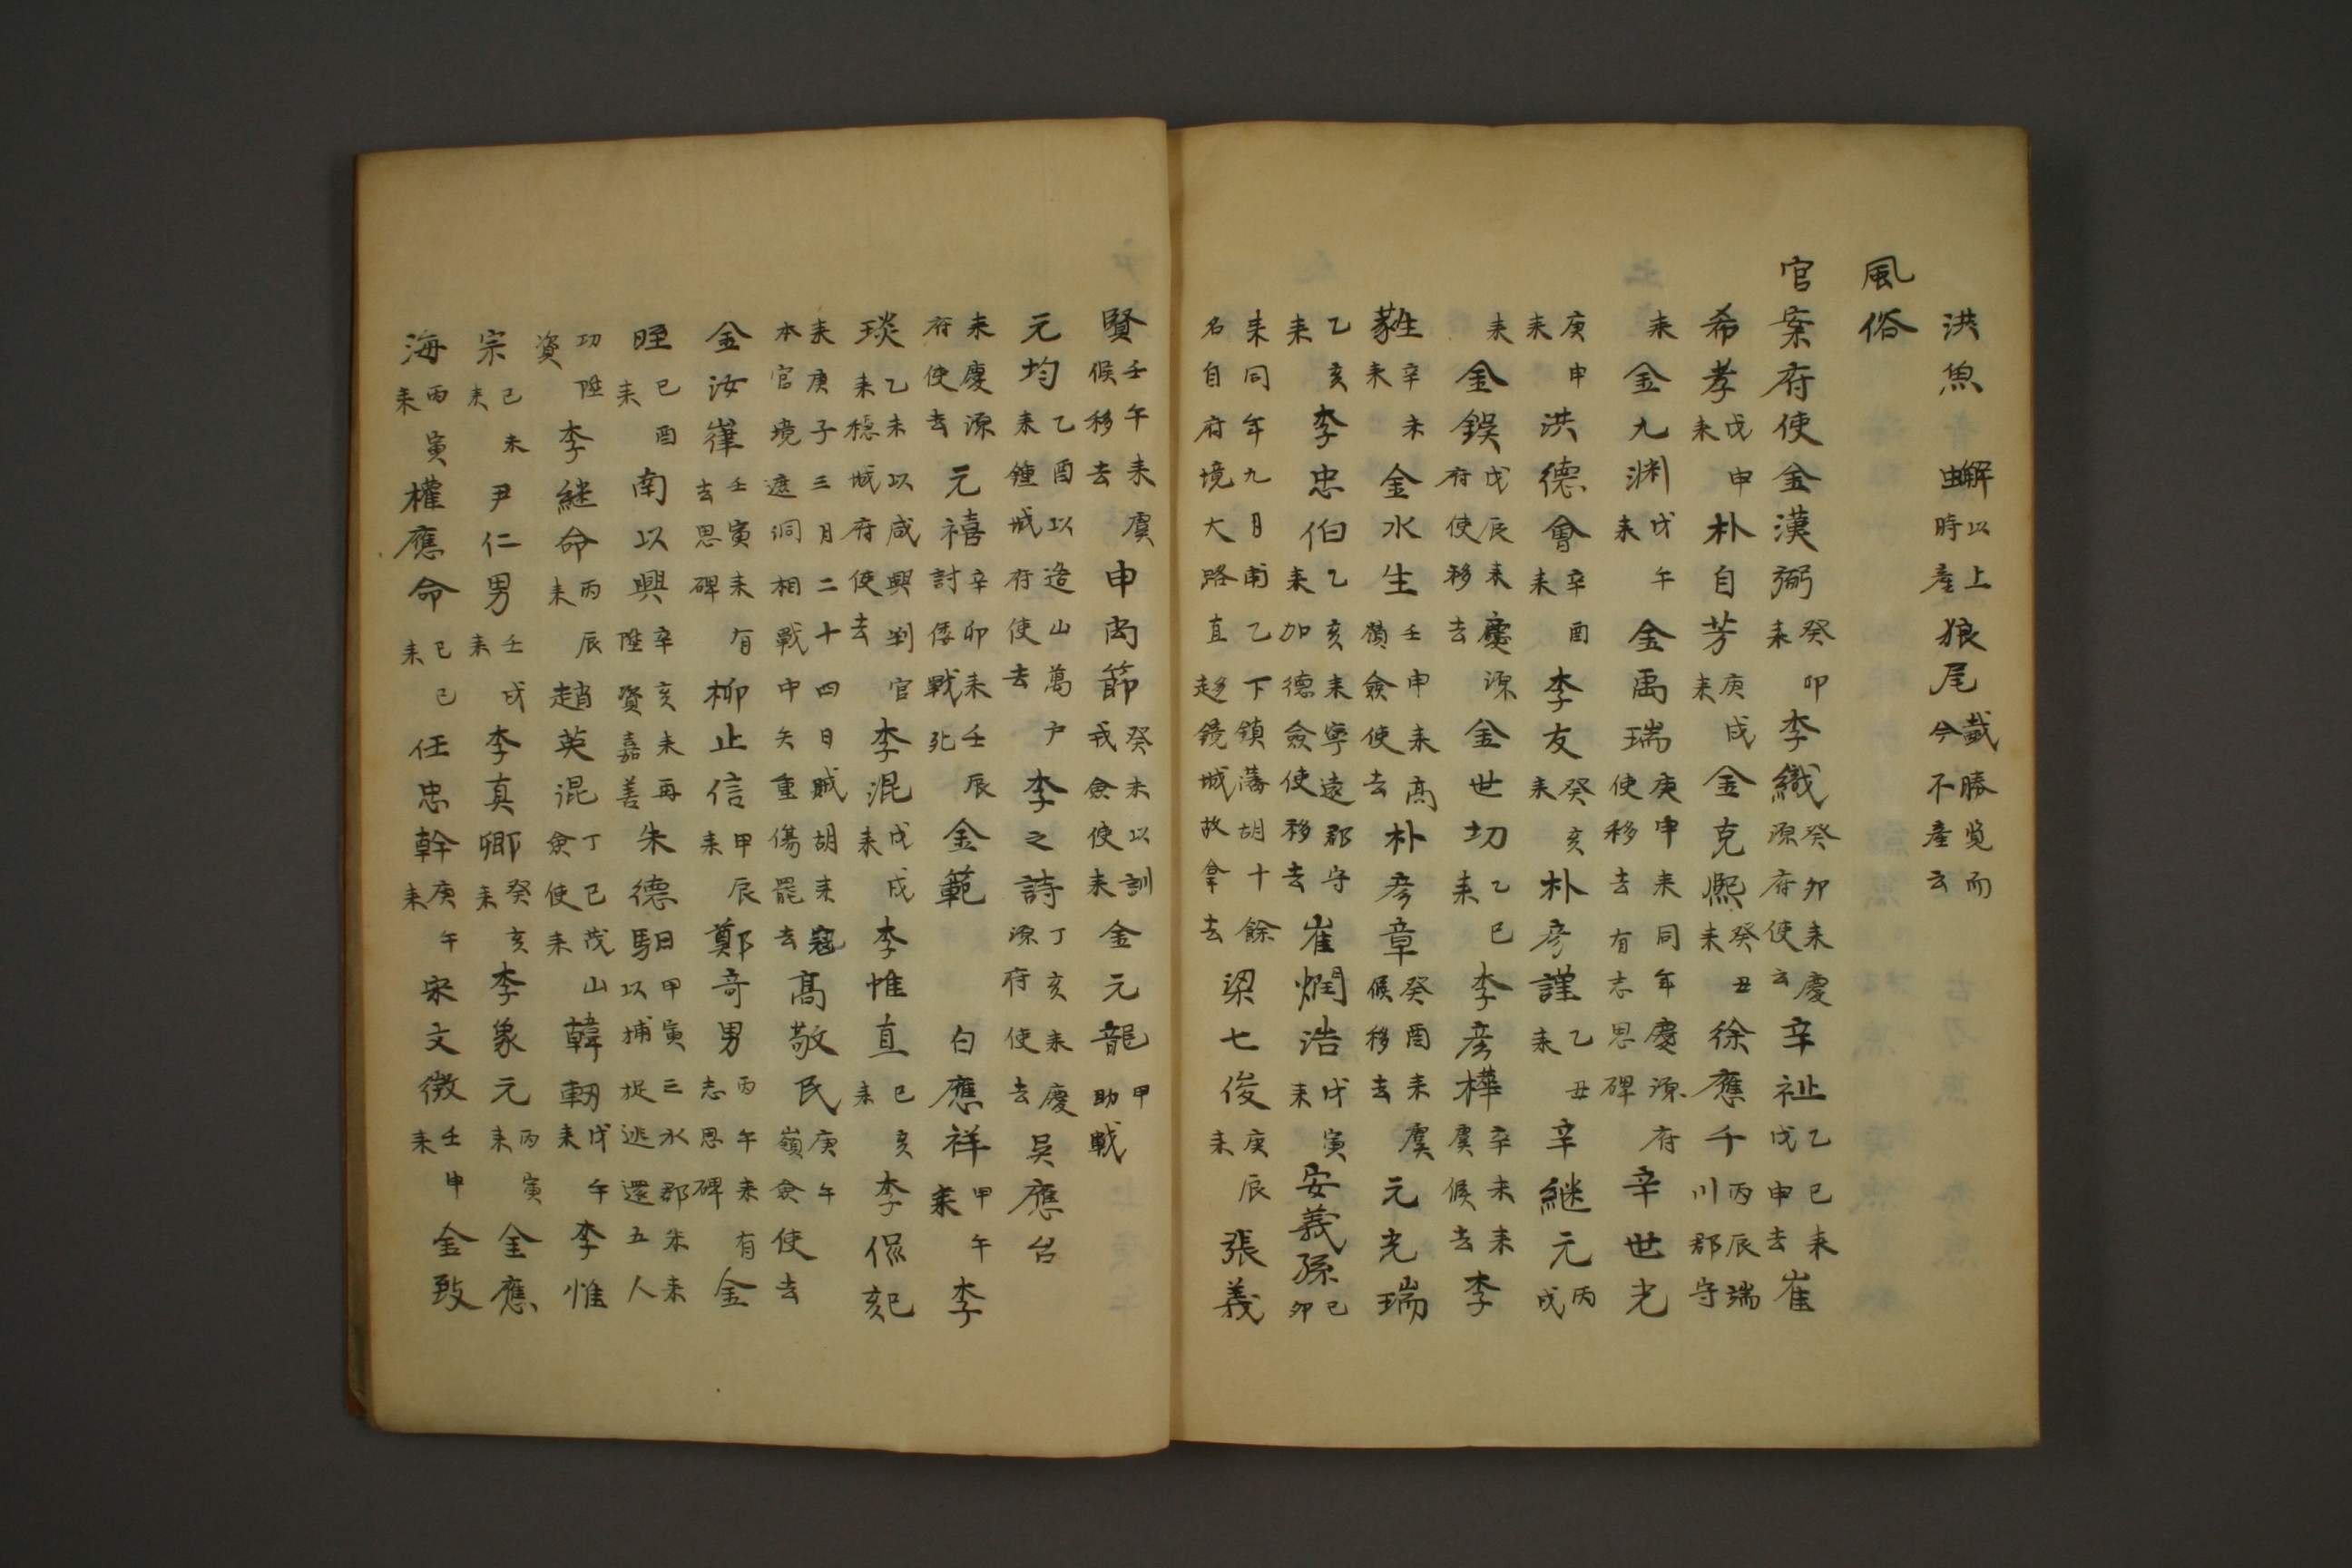 洪魚 蠏以上 時產 狼尾 載勝覽而今不產云
風俗
官案府使金漢弼癸卯來李織癸卯來慶源府使去辛祉乙巳來戊申去崔
希孝戊申來朴自芳庚戌來金克熙癸丑來徐應千丙辰端川郡守
來金九渊戊午來金禹瑞庚申來同年慶源府使移去有志思碑辛世光
庚申來洪德會辛酉來李友癸亥來朴彦謹乙丑來辛継元丙戌
來金鋘戊辰來慶源府使移去金世切乙巳來李彦樺辛未來虞候去李
辛未來金水生壬申來高嶺僉使去朴彦章癸酉來虞候移去元光瑞
乙亥來李忠伯乙亥來寧遠郡守來加德僉使移去崔烱浩戊寅來安義孫己卯
來同年九月甫乙下鎮藩胡十餘名自府境大路直趍鏡城故拿去梁七俊庚辰來張義
賢壬午來虞候移去申尚節癸未以訓戎僉使來金元龍甲助戰
元均乙酉以造山萬户來鍾城府使去李之詩丁亥來慶源府使去吳應台
來慶源府使去元禧辛卯來壬辰討倭戰死金範 白應祥甲午來李
琰乙未以咸興判官來穩城府使去李混戊戌來李惟直己亥來李侃己亥
來庚子三月二十四日賊胡來寇本官境遮洞相戰中矢重傷罷去髙敬民庚午嶺僉使去
金汝嵂壬寅來有去思碑柳止信甲辰來鄭奇男丙午來有志思碑金
晊己酉來南以興辛亥來再陞資嘉善朱德馹甲寅三水郡朱來以捕捉逃還五人
功陞資李継命丙辰來趙英混丁巳茂山僉使來韓軔戊午來李惟
宗己未來尹仁男壬戌來李真卿癸亥來李象元丙寅來金應
海丙寅來權應命己巳來任忠幹庚午來宋文徵壬申來金致